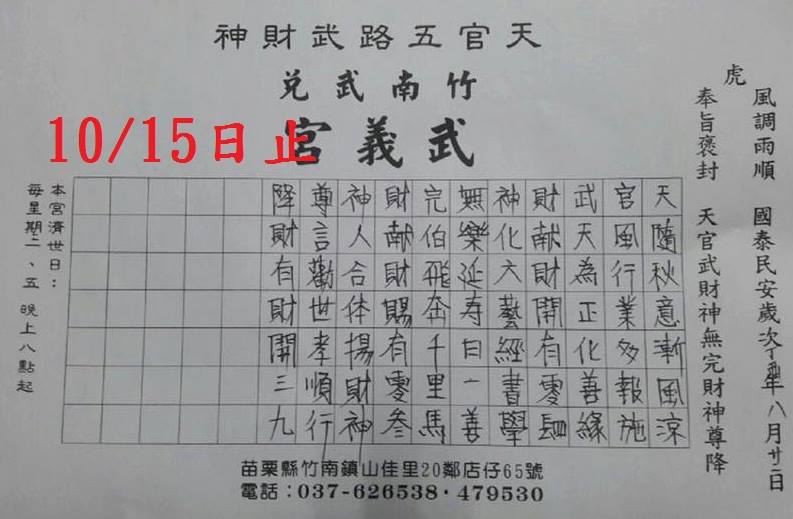 天官五路武財神
竹南武兌
武義宮
10/15日止
風調雨順 國泰民安歲次丁酉年八月廿二日
虎
奉旨褒封 天官武財神無完財神尊降
天隨秋意漸風涼
官風行業多報施
武天為正化善緣
財献財開有零肆
神化六藝經書學
無樂延寿日一善
完伯飛奔千里馬
財献財賜有零叁
神人合体揚財神
尊言勸世孝順行
降財有財開三九
本宮濟世日：
每星期二、五 晚上八點起
苗栗縣竹南鎮山佳里20鄰店仔65號
電話：037-626538·479530